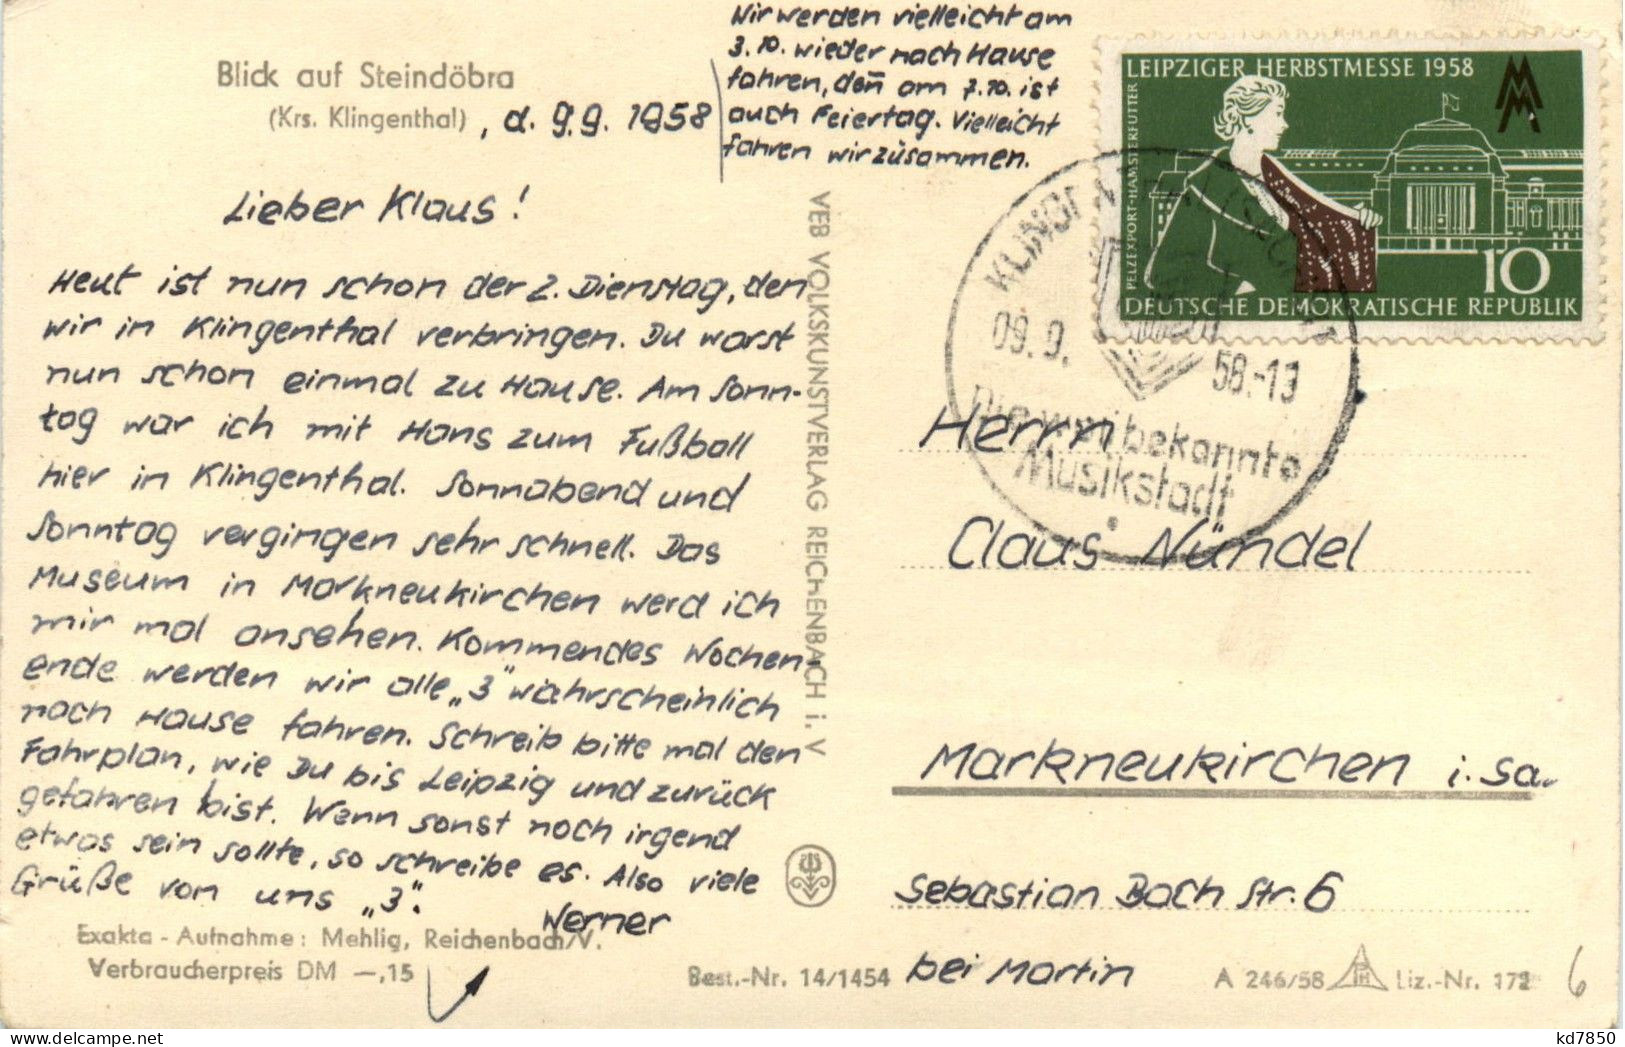 Blick auf Steindöbra
(Krs. Klingenthal) , d. 9.9. 1958
Lieber Klaus!
Heut ist nun schon der 2. Dienstag, den
wir in Klingenthal verbringen. Du warst
nun schon einmal zu Hause. Am Sonn-
tag war ich mit Hans zum Fußball
hier in Klingenthal. Sonnabend und
Sonntag vergingen sehr schnell. Das
Museum in Markneukirchen werd ich
mir mal ansehen. Kommendes Wochen-
ende werden wir alle „3" wahrscheinlich
nach Hause fahren. Schreib bitte mal den
Fahrplan, wie Du bis Leipzig und zurück
gefahren bist. Wenn sonst noch irgend
etwas sein sollte, so schreibe es. Also viele
Grüße von uns „3".
Werner
Wir werden vielleicht am
3.10. wieder nach Hause
fahren, den̄ am 7.10. ist
auch Feiertag. Vielleicht
fahren wir zusammen.
Exakta - Aufnahme: Mehlig, Reichenbach/V.
Verbraucherpreis DM —,15
Best.-Nr. 14/1454
VEB VOLKSKUNSTVERLAG REICHENBACH i. V
LEIPZIGER HERBSTMESSE 1958
PELZEXPORT·HAMSTERFUTTER
10
DEUTSCHE DEMOKRATISCHE REPUBLIK
09.9. 58.-13
Die weitbekannte
Musikstadt
Herrn
Claus Nündel
Markneukirchen i. Sa.
Sebastian Bach Str. 6
bei Martin
A 246/58 Liz.-Nr. 172
6
kd7850